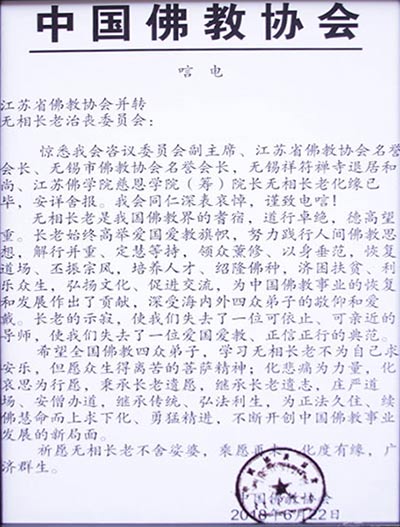 中国佛教协会
唁电
江苏省佛教协会并转
无相长老治丧委员会：
惊悉我会咨议委员会副主席、江苏省佛教协会名誉
会长、无锡市佛教协会名誉会长，无锡祥符禅寺退居和
尚、江苏佛学院慈恩学院（筹）院长无相长老化缘已
毕，安详舍报。我会同仁深表哀悼，谨致电唁！
无相长老是我国佛教界的耆宿，道行卓绝，德高望
重。长老始终高举爱国爱教旗帜，努力践行人间佛教思
想，解行并重、定慧等持，领众薰修、以身垂范，恢复
道场、丕振宗风，培养人才、绍隆佛种，济困扶贫、利
乐众生，弘扬文化、促进交流，为中国佛教事业的恢复
和发展作出了贡献，深受海内外四众弟子的敬仰和爱
戴。长老的示寂，使我们失去了一位可依止、可亲近的
导师，使我们失去了一位爱国爱教、正信正行的典范。
希望全国佛教四众弟子，学习无相长老不为自己求
安乐，但愿众生得离苦的菩萨精神；化悲痛为力量，化
哀思为行愿，秉承长老遗愿，继承长老遗志，庄严道
场、安僧办道，继承传统、弘法利生，为正法久住、续
佛慧命而上求下化、勇猛精进，不断开创中国佛教事业
发展的新局面。
祈愿无相长老不舍娑婆，乘愿再来，化度有缘，广
济群生。
中国佛教协会
6月22日